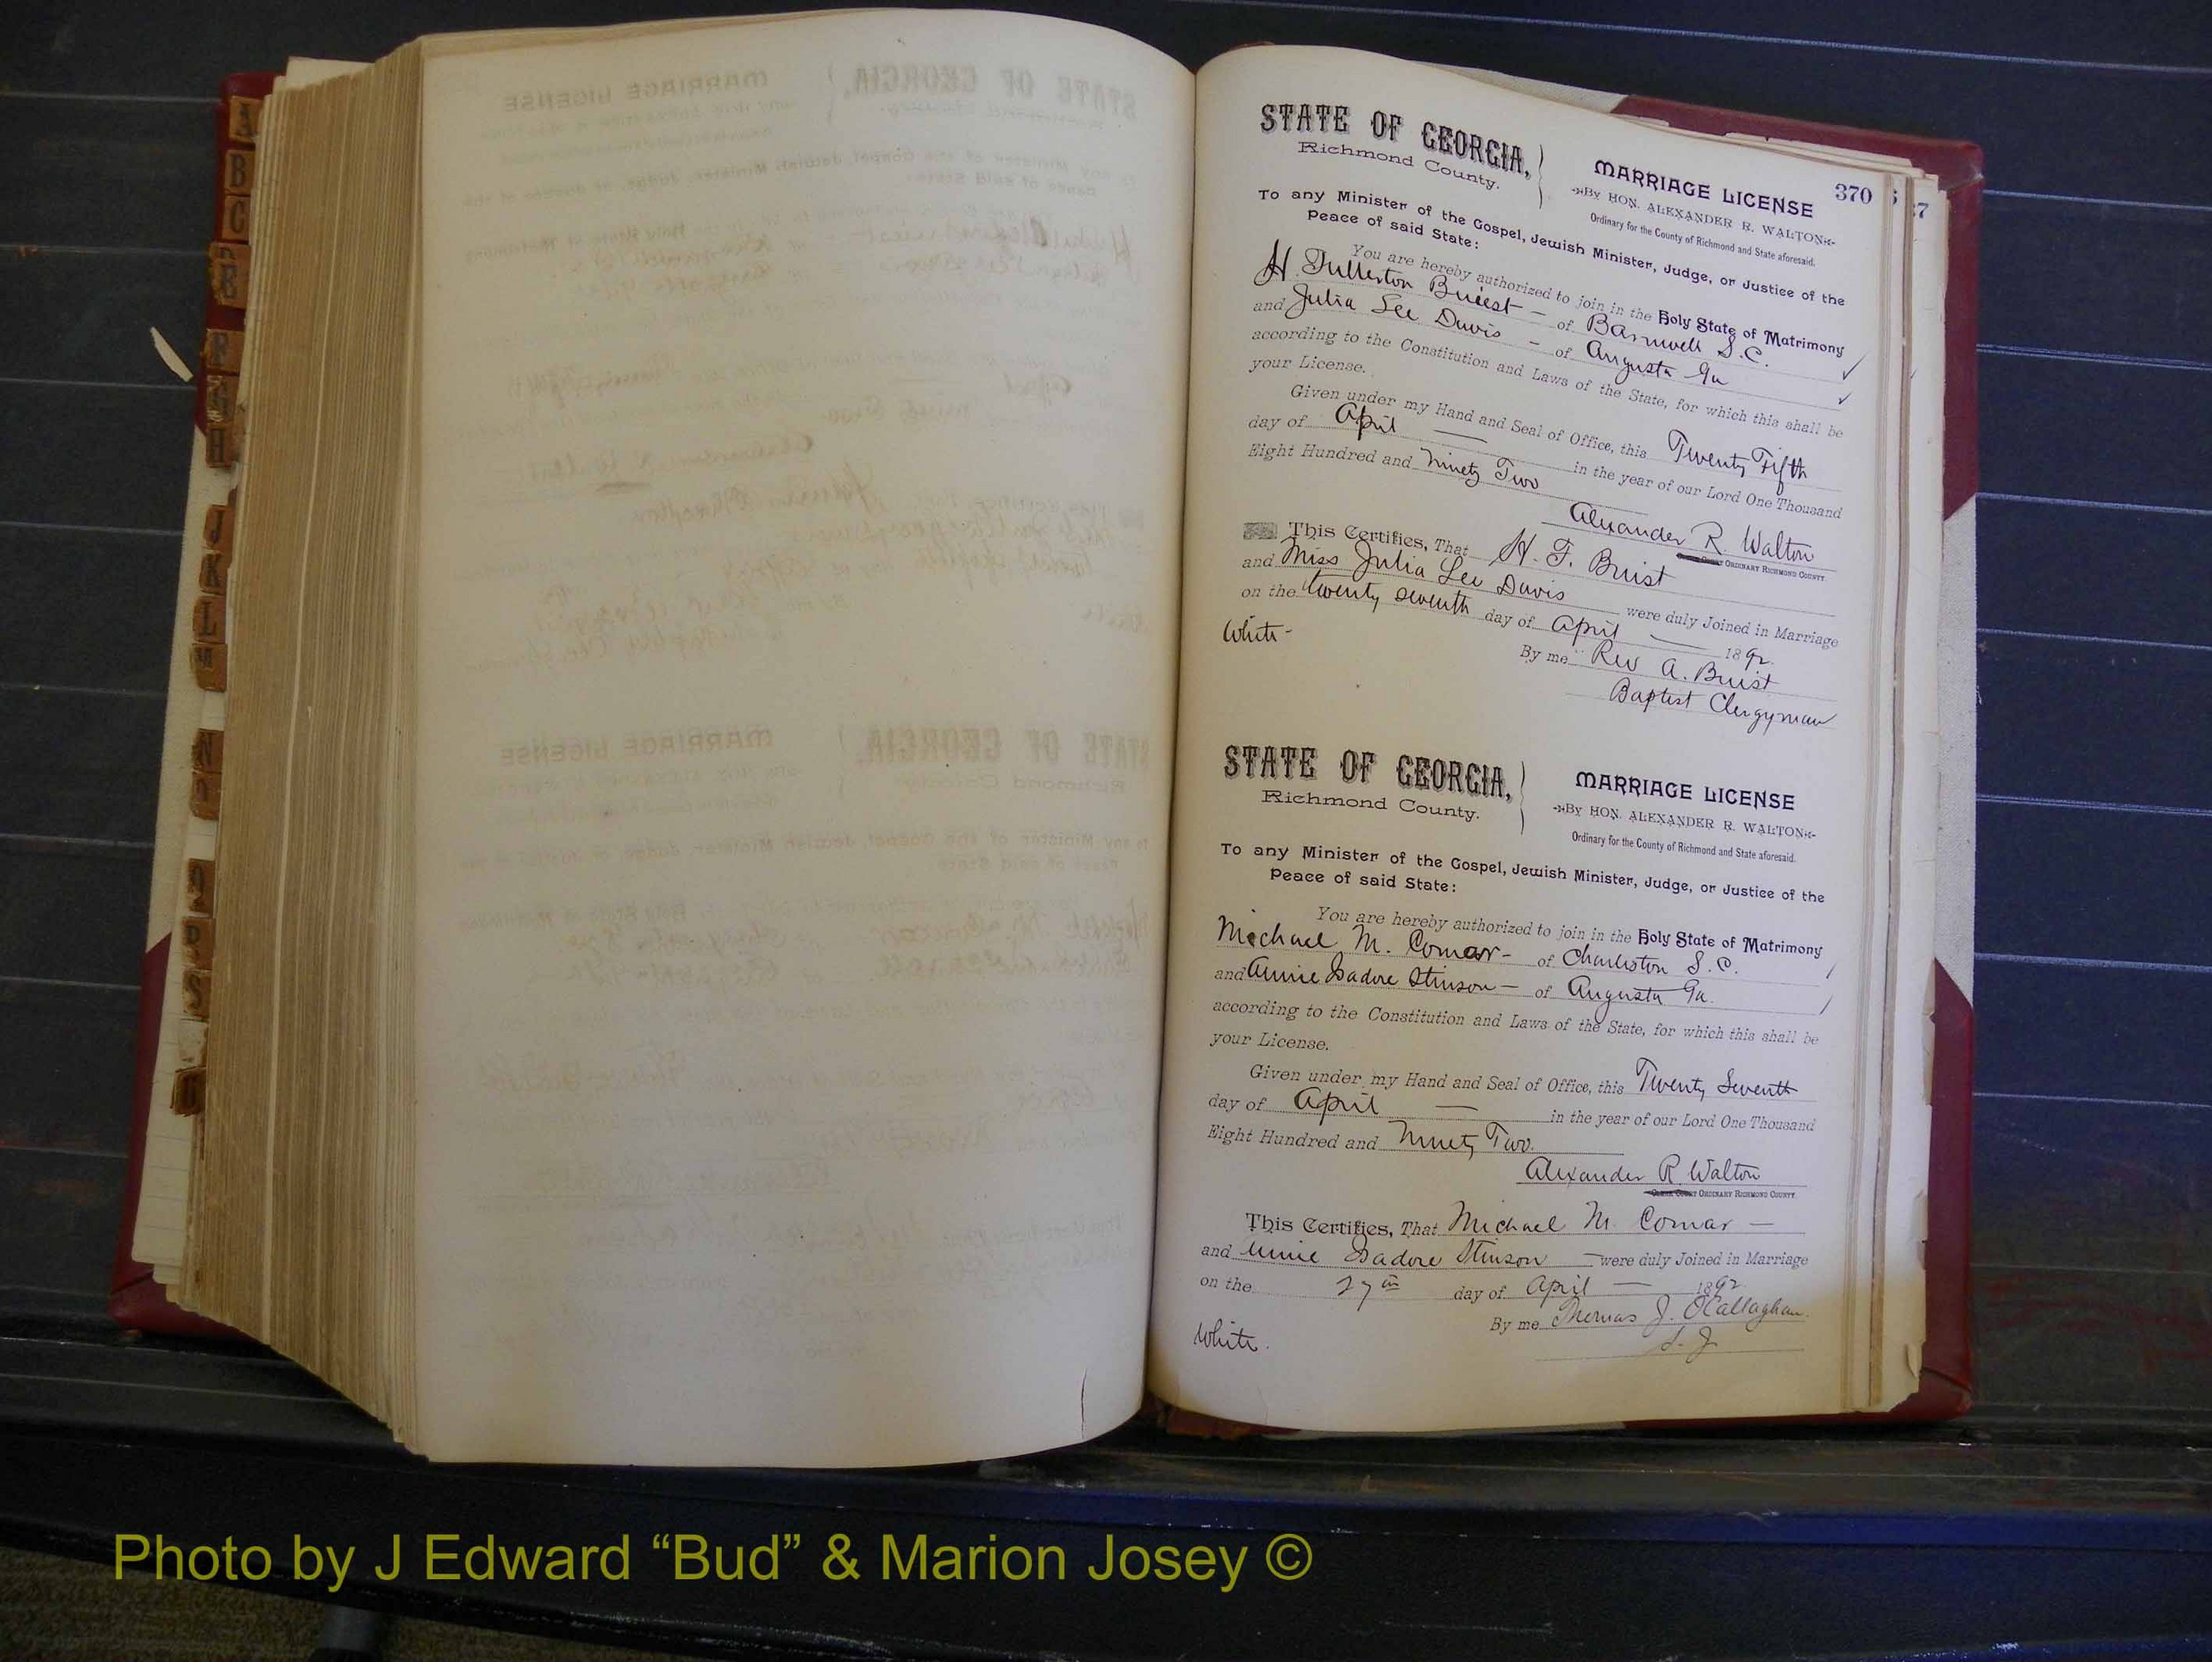 370
STATE OF GEORGIA,
Richmond County.
MARRIAGE LICENSE
By HON. ALEXANDER R. WALTON
Ordinary for the County of Richmond and State aforesaid.
To any Minister of the Gospel, Jewish Minister, Judge, or Justice of the
Peace of said State:
You are hereby authorized to join in the Holy State of Matrimony
H. Fullerton Buist - of Barnwell S.C.
and Julia Lee Davis - of Augusta Ga
according to the Constitution and Laws of the State, for which this shall be
your License.
Given under my Hand and Seal of Office, this Twenty Fifth
day of April — in the year of our Lord One Thousand
Eight Hundred and Ninety Two
Alexander R. Walton
ORDINARY RICHMOND COUNTY.
This Certifies, That H. F. Buist
and Miss Julia Lee Davis were duly Joined in Marriage
on the twenty seventh day of April — 1892.
White -
By me Rev A. Buist
Baptist Clergyman
STATE OF GEORGIA,
Richmond County.
MARRIAGE LICENSE
By HON. ALEXANDER R. WALTON
Ordinary for the County of Richmond and State aforesaid.
To any Minister of the Gospel, Jewish Minister, Judge, or Justice of the
Peace of said State:
You are hereby authorized to join in the Holy State of Matrimony
Michael M. Comar - of Charleston S.C.
and Annie Isadore Stinson - of Augusta Ga.
according to the Constitution and Laws of the State, for which this shall be
your License.
Given under my Hand and Seal of Office, this Twenty Seventh
day of April — in the year of our Lord One Thousand
Eight Hundred and Ninety Two.
Alexander R. Walton
CLERK COURT ORDINARY RICHMOND COUNTY.
This Certifies, That Michael M. Comar —
and Annie Isadore Stinson — were duly Joined in Marriage
on the 27th day of April — 1892
By me Thomas J. O'Callaghan
S. J.
White.
A
B
C
F
G
H
J
K
L
M
N
S
Photo by J Edward “Bud” & Marion Josey ©